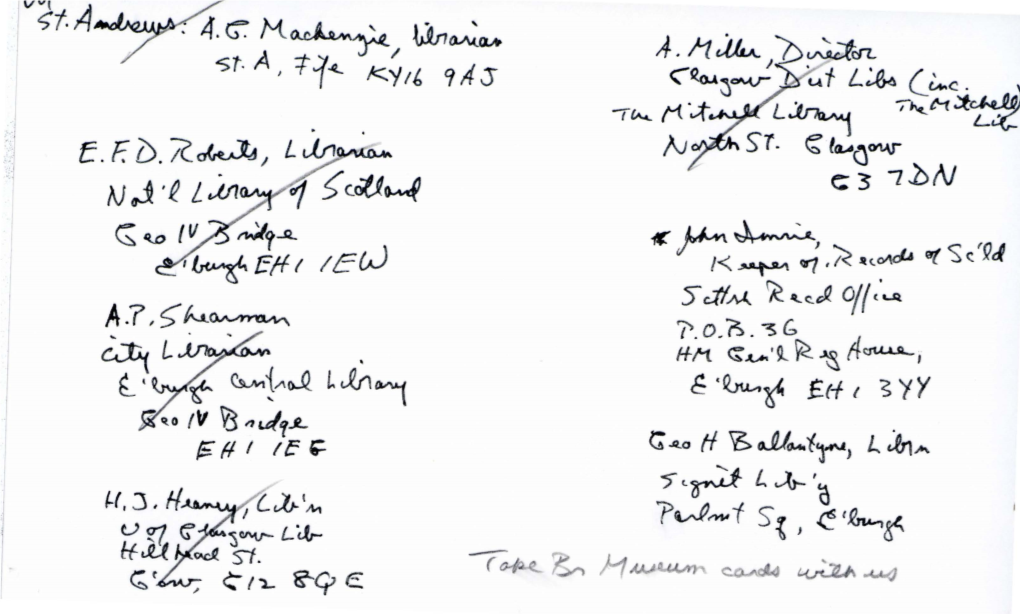 St. Andrews: A.G. Mackenzie, librarian
St. A, Fife KY16 9AJ
E.F.D. Roberts, Librarian
Nat'l Library of Scotland
Geo IV Bridge
E'burgh EH1 1EW
A.P. Shearman
City Librarian
E'burgh Central Library
Geo IV Bridge
EH1 1EG
H.J. Heaney, Lib'n
U of Glasgow Lib
Hillhead St.
G'ow, G12 8QE
A. Miller, Director
Glasgow Dist Libs (inc.
The Mitchell Library The Mitchell
Lib
North St. Glasgow
G3 7DN
John Imrie,
Keeper of Records of Sc'ld
Scttsh Recd Office
P.O.B. 36
HM Gen'l Reg House,
E'burgh EH1 3YY
Geo H Ballantyne, Librn
Signet Lib'y
Parlmt Sq, E'burgh
Take Br Museum cards with us